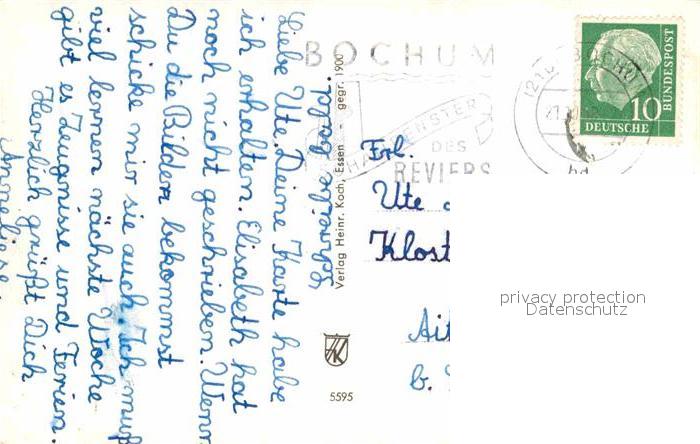 Bochum, d. 19.3.
Liebe Ute. Deine Karte habe
ich erhalten. Elisabeth hat
noch nicht geschrieben. Wenn
Du die Bilder bekommst
schicke mir sie auch. Ich muß
viel lernen nächste Woche
gibt es Zeugnisse und Ferien.
Herzlich grüßt Dich
Anneliese.
Verlag Heinr. Koch, Essen - gegr. 1900
5595
BOCHUM
SCHAUFENSTER
DES
REVIERS
DEUTSCHE
BUNDESPOST
10
Frl.
Ute
Klost
Ait
b.
privacy protection
Datenschutz